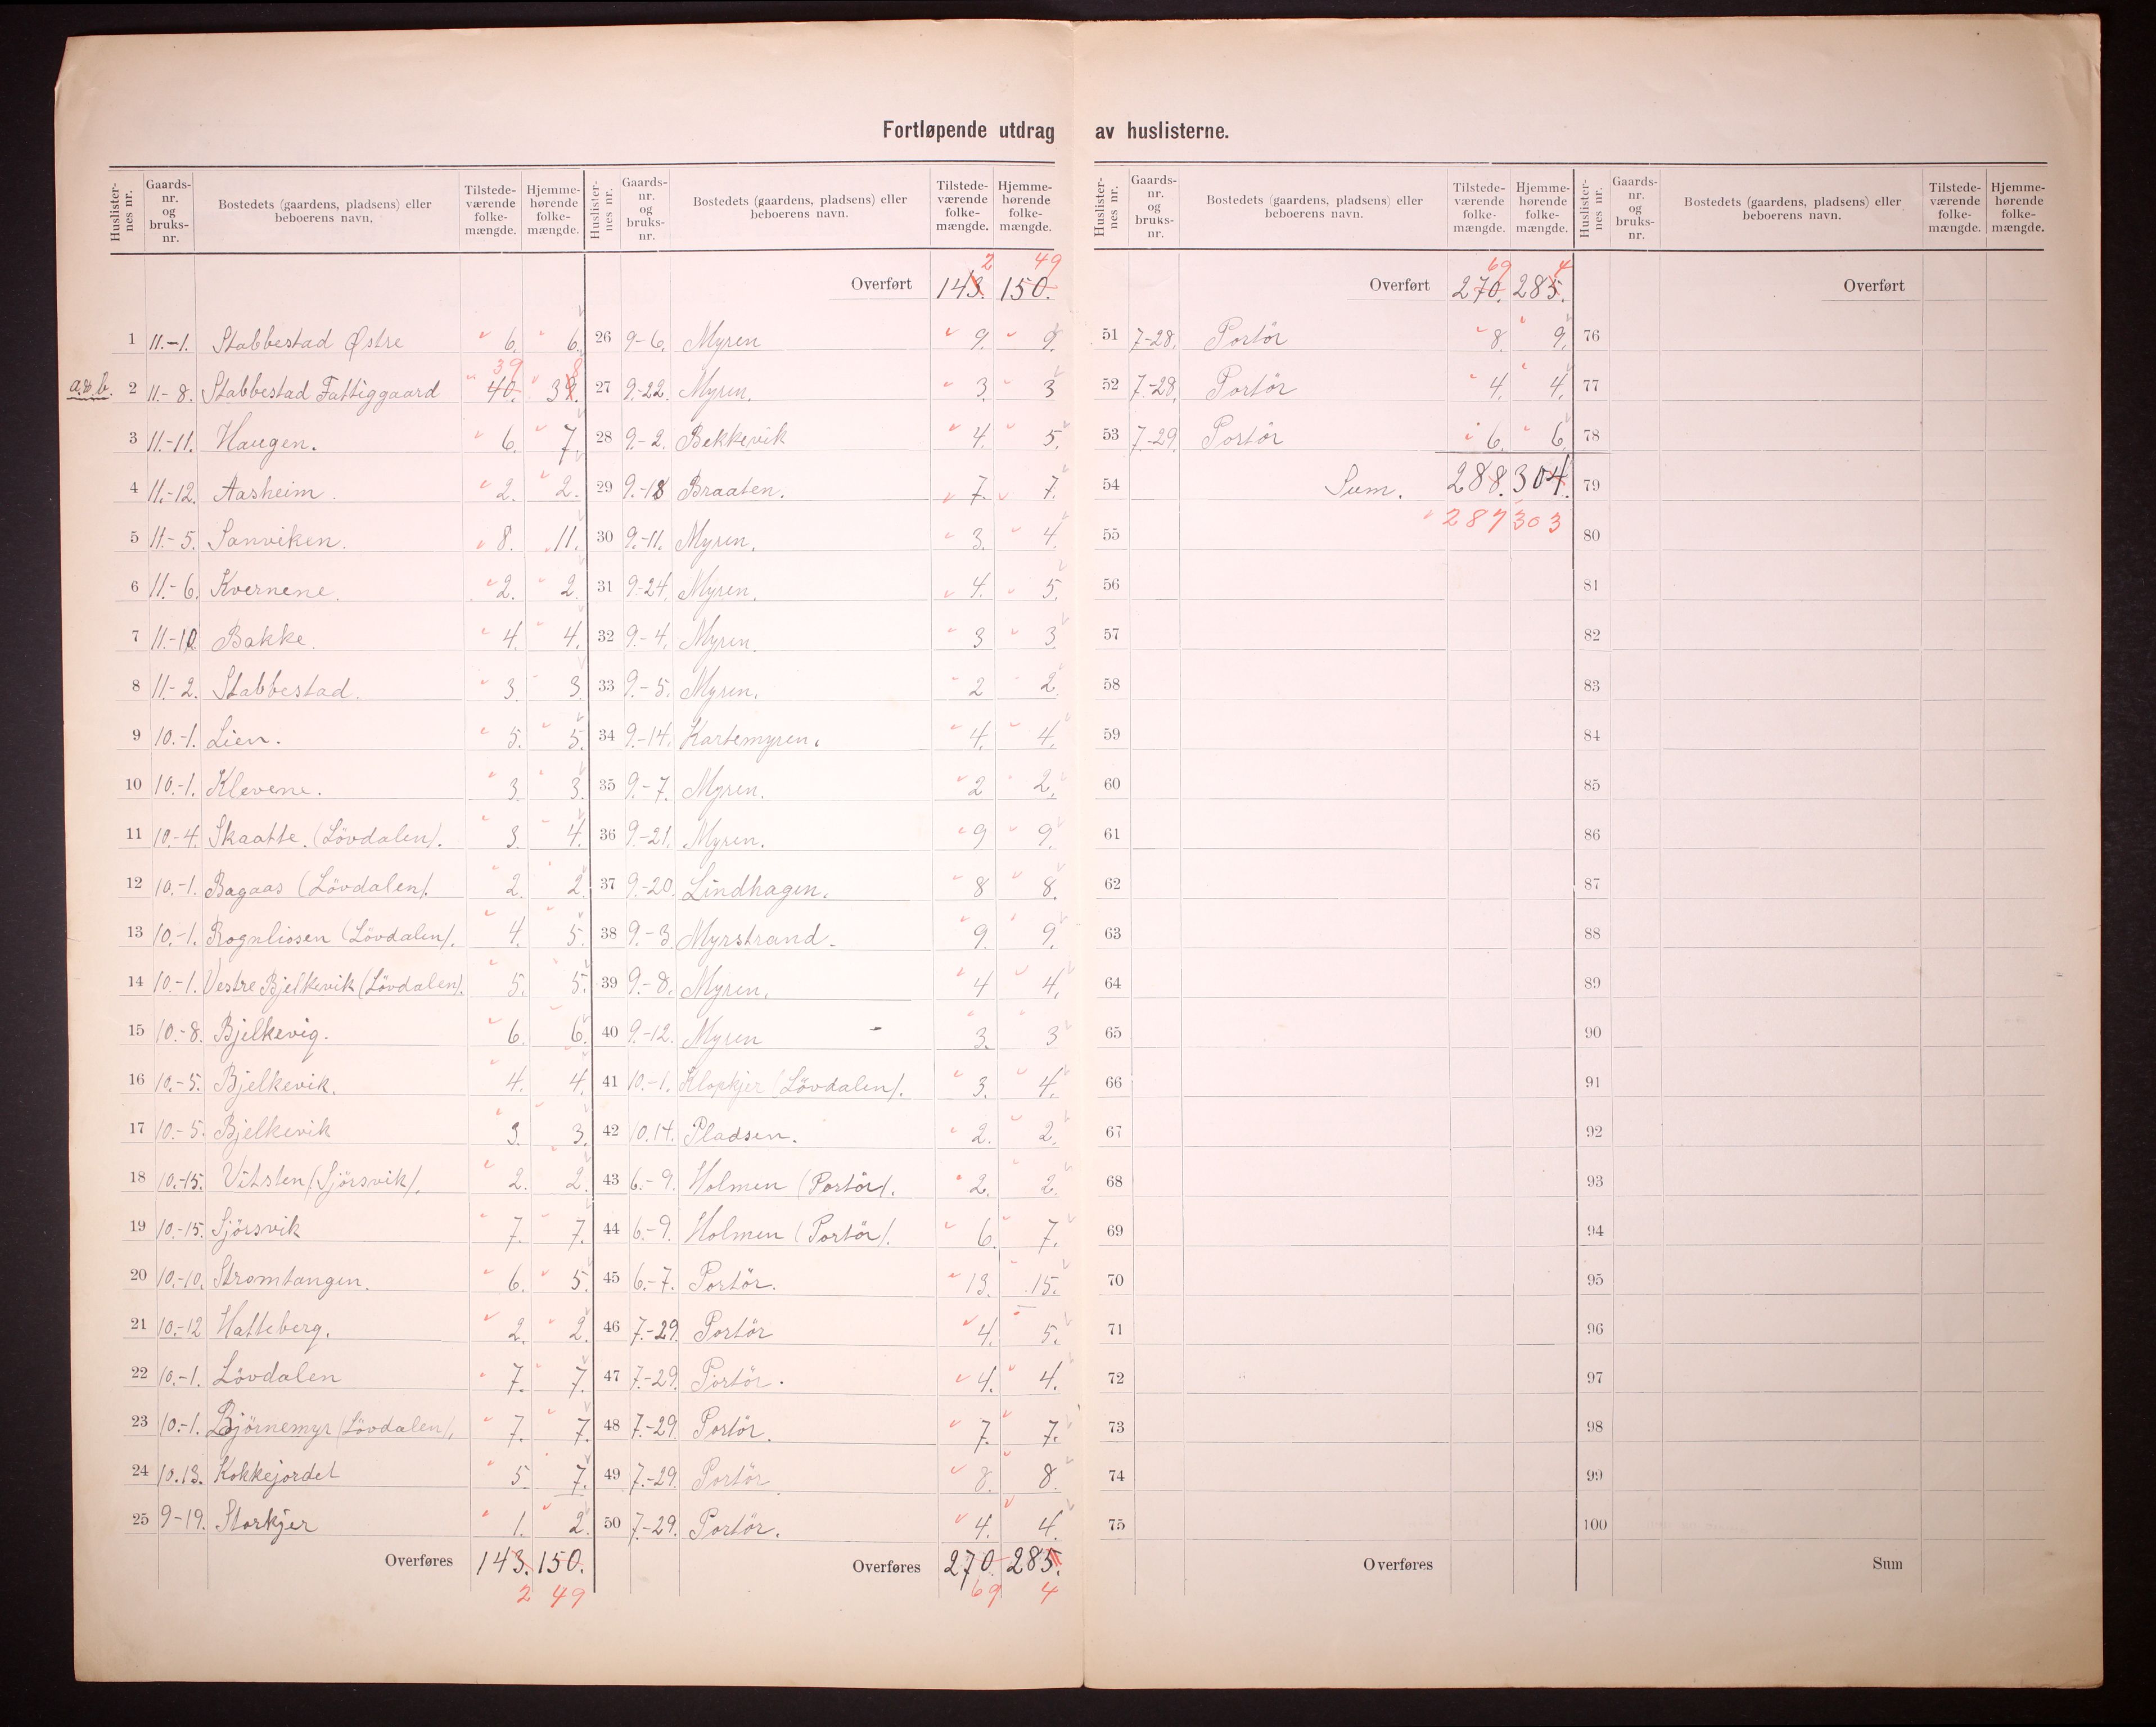 Fortløpende utdrag av huslisterne.
Huslister-nes nr. Gaards-nr. og bruks-nr. Bostedets (gaardens, pladsens) eller beboerens navn. Tilstede-værende folke-mængde. Hjemme-hørende folke-mængde.
1 11.-1. Stabbestad Østre 6. 6.
39 8
a.&b. 2 11.-8. Stabbestad Fattiggaard 40. 39.
3 11.-11. Haugen. 6. 7.
4 11.-12. Aasheim. 2. 2.
5 11.-5. Sanviken. 8. 11.
6 11.-6. Kvernene. 2. 2.
7 11.-10 Bakke. 4. 4.
8 11.-2. Stabbestad. 3. 3.
9 10.-1. Lien. 5. 5.
10 10.-1. Klevene. 3. 3.
11 10.-4. Skaatte. (Lövdalen). 3. 4.
12 10.-1. Bagaas (Lövdalen). 2. 2.
13 10.-1. Rognliosen (Lövdalen). 4. 5.
14 10.-1. Vestre Bjelkevik (Lövdalen). 5. 5.
15 10.-8. Bjelkevig. 6. 6.
16 10.-5. Bjelkevik. 4. 4.
17 10.-5. Bjelkevik 3. 3.
18 10.-15. Vitsten (Sjörsvik). 2. 2.
19 10.-15. Sjörsvik 7. 7.
20 10.-10. Stromtangen. 6. 5.
21 10.-12 Hatteberg. 2. 2.
22 10.-1. Lövdalen 7. 7.
23 10.-1. Björnemyr (Lövdalen). 7. 7.
24 10.13. Kokkejordet 5 7.
25 9-19. Storkjer 1. 2.
Overføres 143. 150.
2 49
Huslister-nes nr. Gaards-nr. og bruks-nr. Bostedets (gaardens, pladsens) eller beboerens navn. Tilstede-værende folke-mængde. Hjemme-hørende folke-mængde.
2 49
Overført 143. 150.
26 9-6. Myren 9. 9.
27 9.-22. Myren. 3. 3
28 9.-2. Bekkevik 4. 5.
29 9.-18 Braaten. 7. 7.
30 9.-11. Myren. 3. 4.
31 9.-24. Myren. 4. 5.
32 9.-4. Myren. 3 3.
33 9.-5. Myren. 2 2.
34 9.-14. Kartemyren. 4. 4.
35 9.-7. Myren. 2 2.
36 9.-21. Myren. 9 9.
37 9.-20. Lindhagen. 8 8.
38 9.-3 Myrstrand. 9. 9.
39 9.-8. Myren. 4 4.
40 9.-12. Myren 3. 3
41 10.-1. (Lövdalen). 3. 4.
42 10.14. Pladsen. 2. 2.
43 6.-9. Holmen (Portör). 2. 2.
44 6.-9. Holmen (Portör). 6. 7.
45 6.-7. Portör. 13. 15.
46 7.-29. Portör 4. 5.
47 7.-29. Portör. 4. 4.
48 7.-29. Portör. 7. 7.
49 7.-29. Portör 8. 8.
50 7.-29. Portör. 4. 4.
Overføres 270. 285.
69 4
Huslister-nes nr. Gaards-nr. og bruks-nr. Bostedets (gaardens, pladsens) eller beboerens navn. Tilstede-værende folke-mængde. Hjemme-hørende folke-mængde.
69 4
Overført 270. 285.
51 7-28. Portör 8. 9.
52 7.-28. Portör 4. 4.
53 7.-29. Portör 6. 6.
54 Sum. 288. 304.
55 287 303
56
57
58
59
60
61
62
63
64
65
66
67
68
69
70
71
72
73
74
75
Overføres
Huslister-nes nr. Gaards-nr. og bruks-nr. Bostedets (gaardens, pladsens) eller beboerens navn. Tilstede-værende folke-mængde. Hjemme-hørende folke-mængde.
Overført
76
77
78
79
80
81
82
83
84
85
86
87
88
89
90
91
92
93
94
95
96
97
98
99
100
Sum